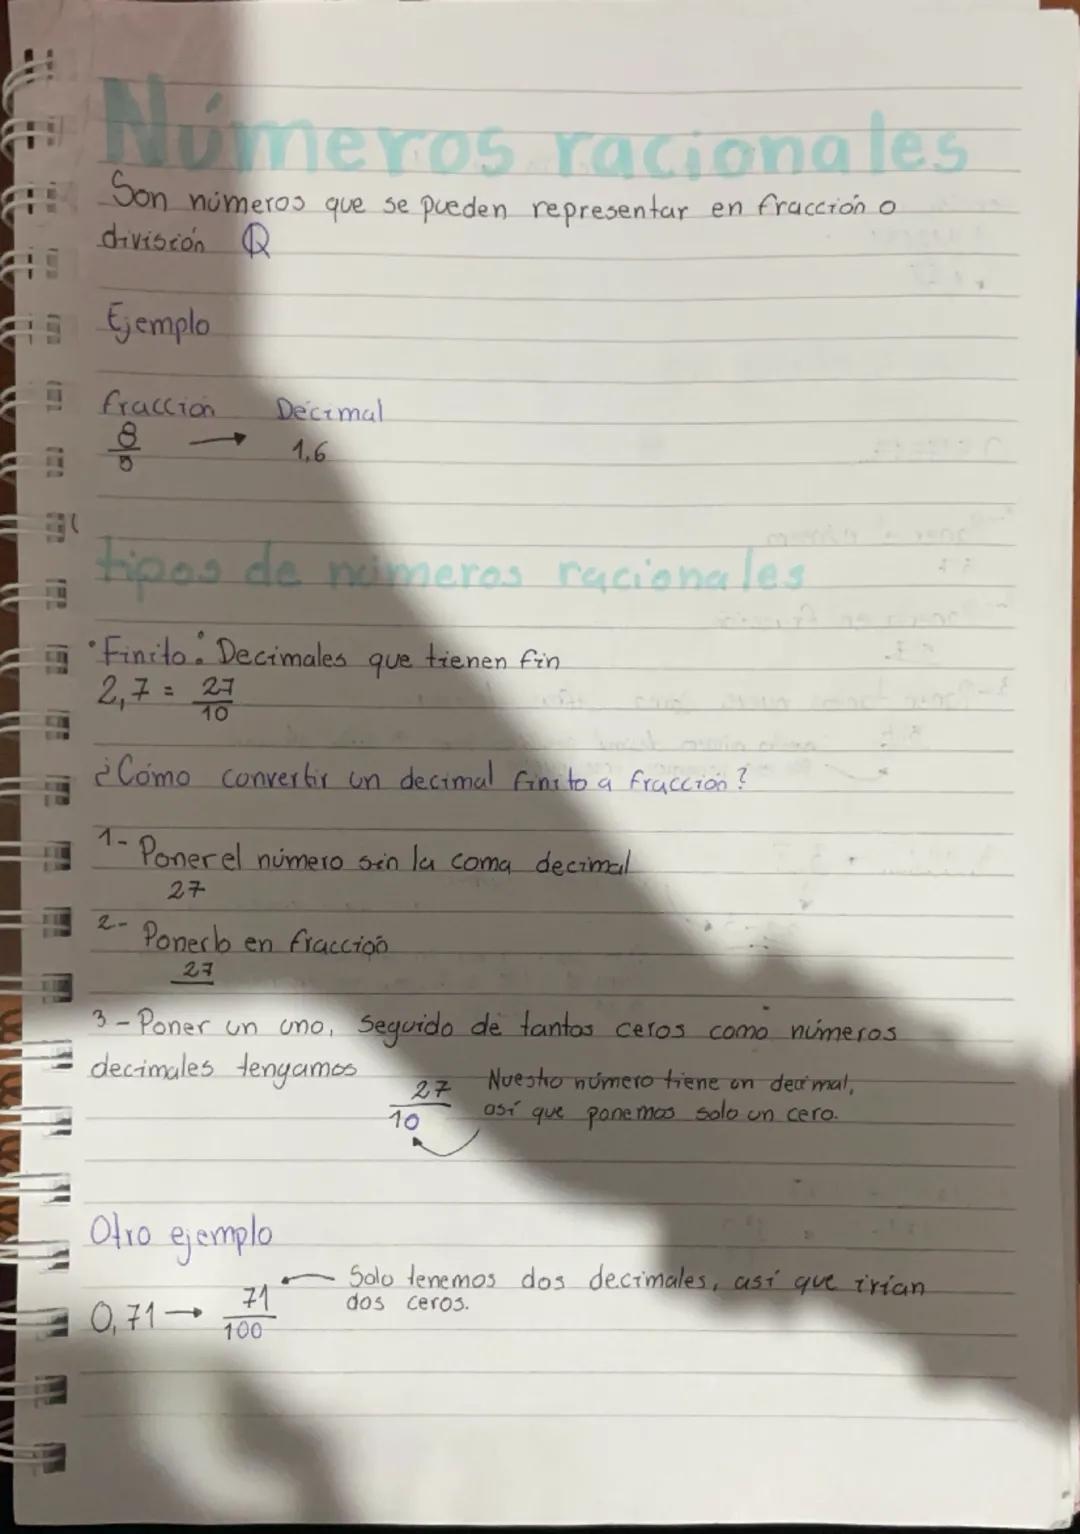 Números racionales
Son números que se pueden representar en fracción o
división ℚ
Ejemplo
fracción Decimal
8/5 → 1,6
tipos de números racionales
• Finito: Decimales que tienen fin
2,7 = 27/10
¿Cómo convertir un decimal finito a fracción?
1- Poner el número sin la coma decimal
27
2- Ponerlo en fracción
27
3- Poner un uno, seguido de tantos ceros como números
decimales tengamos
27/10 Nuestro número tiene un decimal,
así que ponemos solo un cero.
Otro ejemplo
0,71 → 71/100 ← Solo tenemos dos decimales, así que irían
dos ceros.